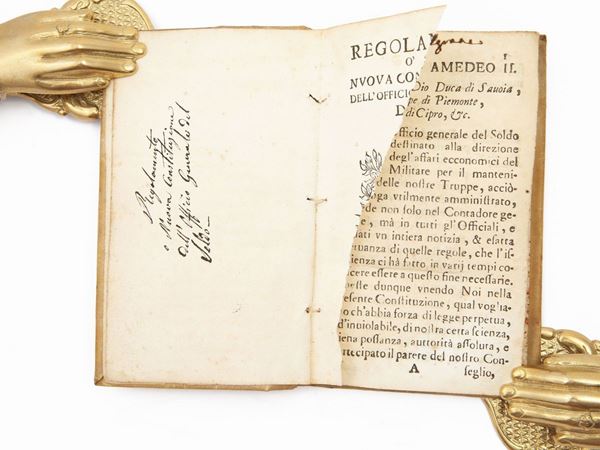 Regolamento
o Nuova Constituzione
dell'Officio Generale del
Soldo
REGOLA
O'
NVOVA CON
DELL'OFFICIO
1
AMEDEO II.
Dio Duca di Sauoia,
pe di Piemonte,
di Cipro, &c.
fficio generale del Soldo
destinato alla direzione
degl'affari economici del
Militare per il manteni-
delle nostre Truppe, acciò-
oga vtilmente amministrato,
de non solo nel Contadore ge-
e, mà in tutti gl'Officiali, e
lati vn intiera notizia, & esatta
ruanza di quelle regole, che l'is-
ienza ci hà fatto in varij tempi co-
cere essere a questo fine necessarie.
este dunque vnendo Noi nella
esente Constituzione, qual vogl'ia-
o ch'abbia forza di legge perpetua,
d'inuiolabile, di nostra certa scienza,
iena possanza, auttorità assoluta, e
rtecipato il parere del nostro Con-
A seglio,